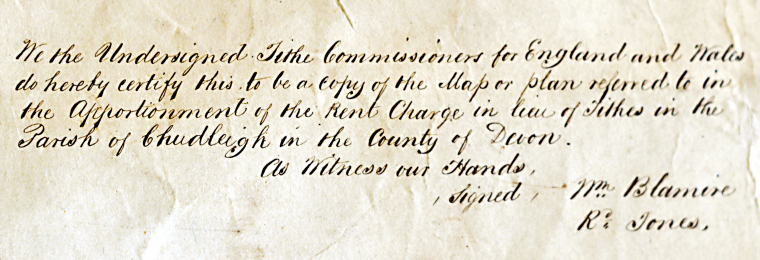 We the Undersigned Tithe Commissioners for England and Wales
do hereby certify this to be a copy of the Map or plan referred to in
the Apportionment of the Rent Charge in lieu of Tithes in the
Parish of Chudleigh in the County of Devon.
As Witness our Hands,
Signed, Wm Blamire
Rd Jones,